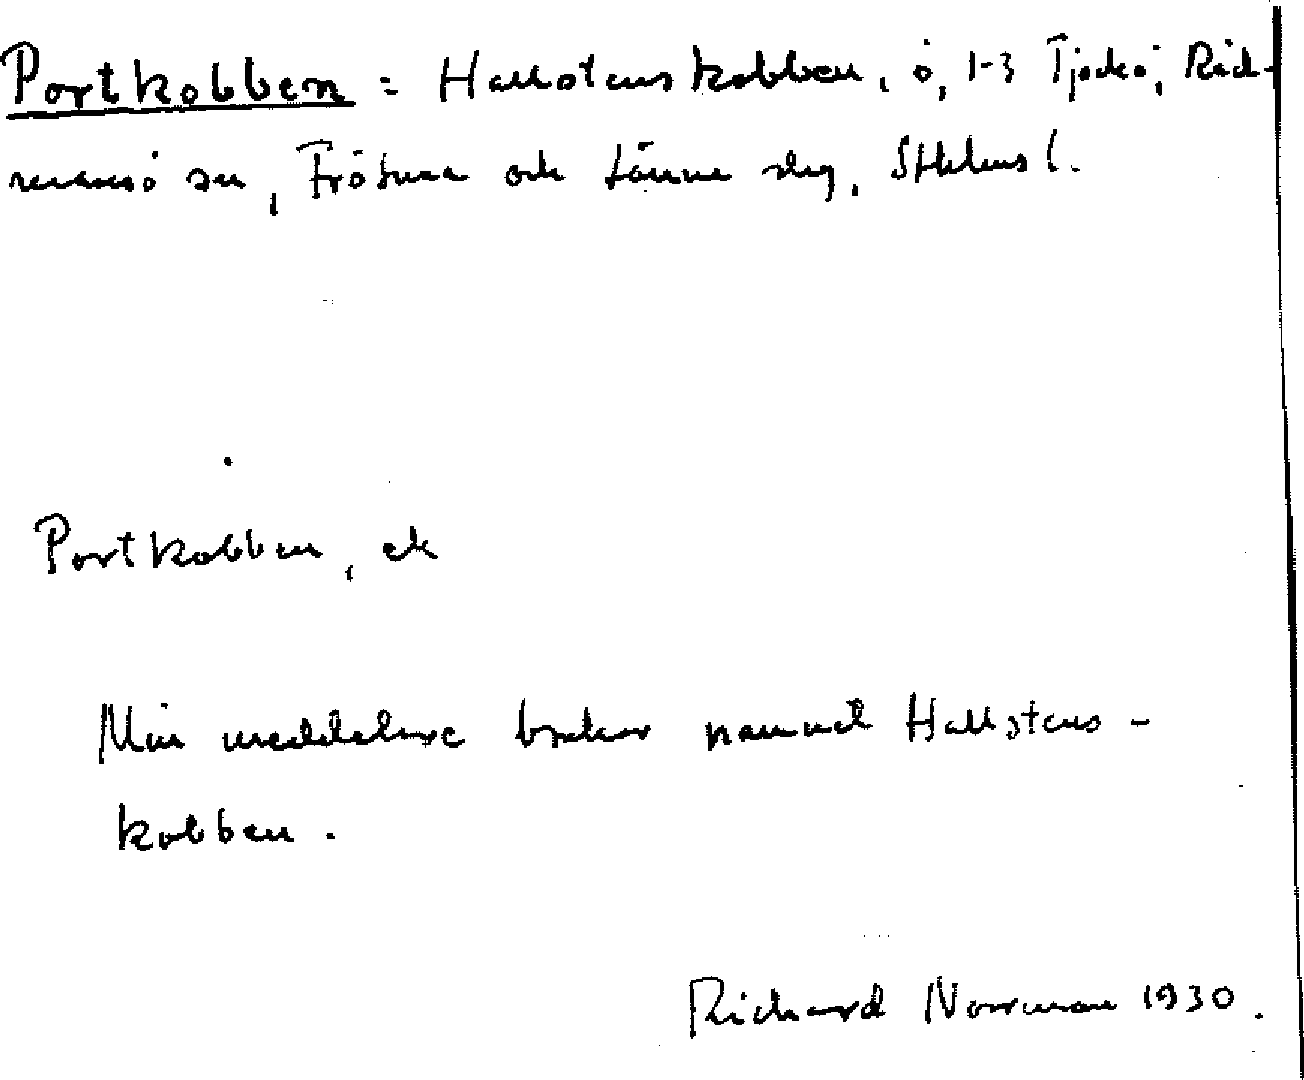 Portkobben = Hallstenskobben, ö, 1-3 Tjockö, Räd-
mansö sn, Frötuna och Länna slg, Sthlms l.
Portkobben, ek
Min meddelare brukar namnet Hallstens-
kobben.
Richard Norrman 1930.